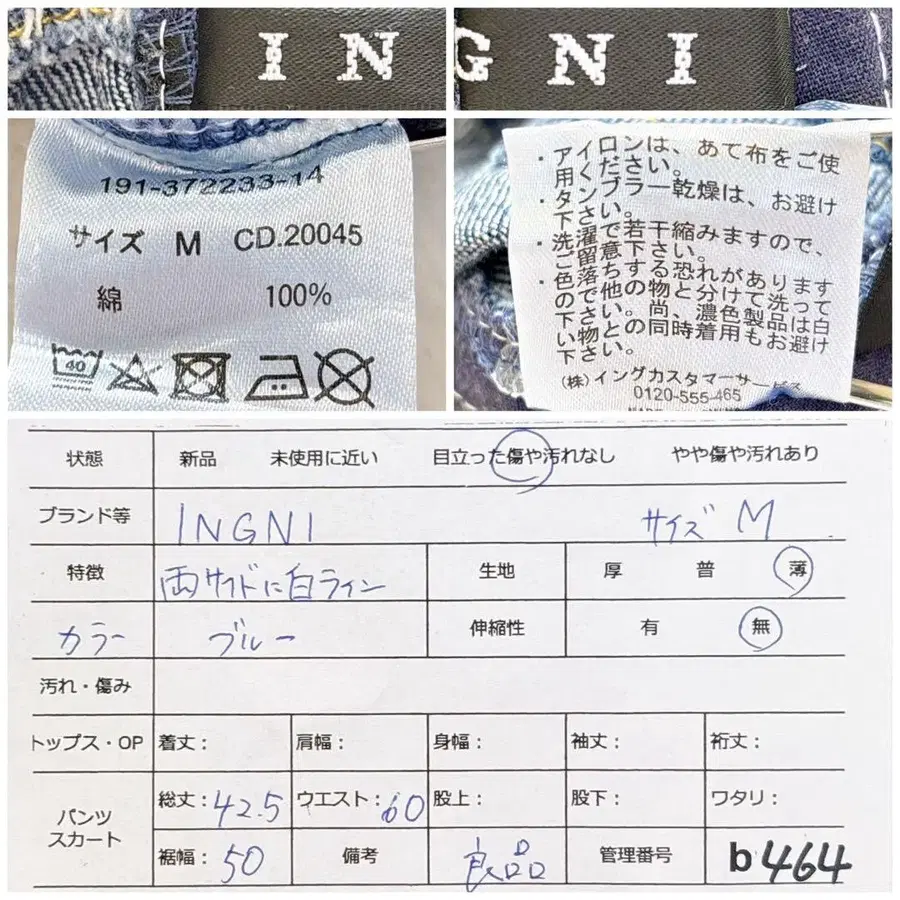 IN
GNI
191-372233-14
サイズ M CD.20045
綿 100%
40
・アイロンは、あて布をご使
用ください。
・タンブラー乾燥は、お避け
下さい。
・洗濯で若干縮みますので、
ご留意下さい。
・色落ちする恐れがあります
ので他の物と分けて洗って
下さい。尚、濃色製品は白
い物との同時着用もお避け
下さい。
(株)イングカスタマーサービス
0120-555-465
状態 新品 未使用に近い 目立った傷や汚れなし やや傷や汚れあり
ブランド等 INGNI サイズ M
特徴 両サイドに白ライン 生地 厚 普 薄
カラー ブルー 伸縮性 有 無
汚れ・傷み
トップス・OP 着丈: 肩幅: 身幅: 袖丈: 裄丈:
パンツ
スカート
総丈:42.5 ウエスト:60 股上: 股下: ワタリ:
裾幅:50 備考 良品 管理番号 b464